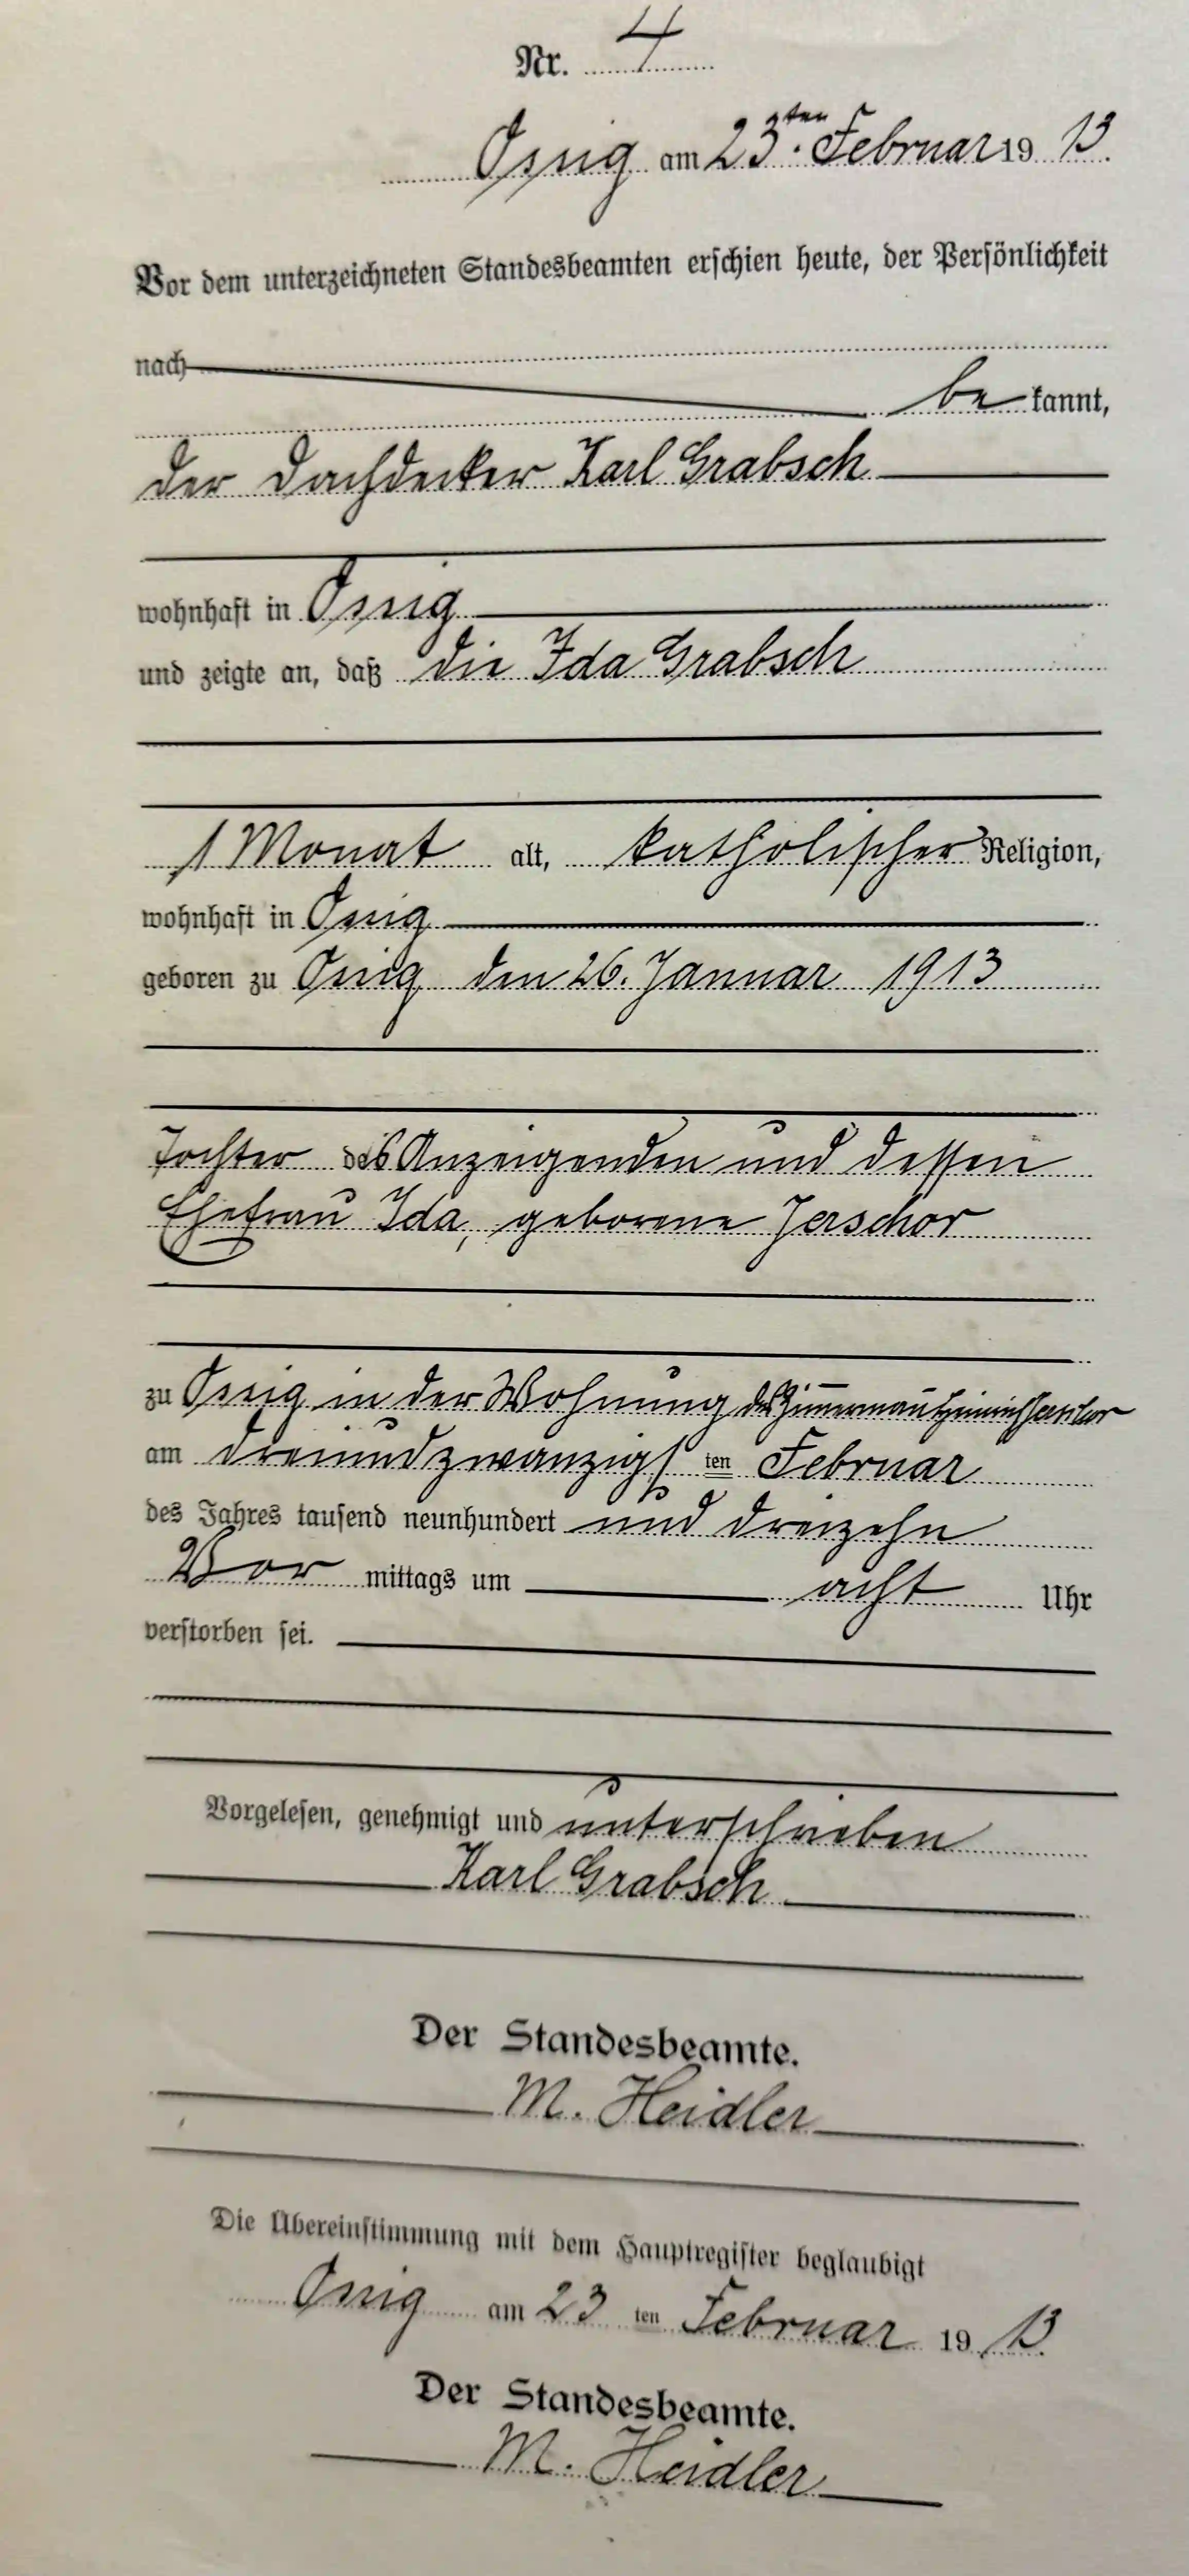 Nr. 4
Ossig am 23ten Februar 19 13.
Vor dem unterzeichneten Standesbeamten erschien heute, der Persönlichkeit
nach
be kannt,
der Dachdecker Karl Grabsch
wohnhaft in Ossig
und zeigte an, daß die Ida Grabsch
1 Monat alt, katholischer Religion,
wohnhaft in Ossig
geboren zu Ossig den 26. Januar 1913
Tochter des Anzeigenden und dessen
Ehefrau Ida, geborene Jerschor
zu Ossig in der Wohnung des Zimmermann Heinrich
am dreiundzwanzigs ten Februar
des Jahres tausend neunhundert und dreizehn
Vor mittags um acht Uhr
verstorben sei.
Vorgelesen, genehmigt und unterschrieben
Karl Grabsch
Der Standesbeamte.
M. Heidler
Die Übereinstimmung mit dem Hauptregister beglaubigt
Ossig am 23 ten Februar 19 13.
Der Standesbeamte.
M. Heidler